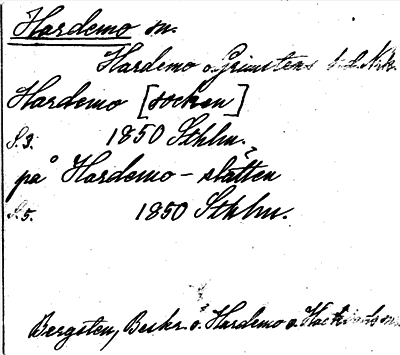 Hardemo sn.
Hardemo o. Grimstens hd. Nrk.
Hardemo [socken]
S. 3. 1850 Sthlm.
på Hardemo-slätten
S. 5. 1850 Sthlm.
Bergsten, Beskr. ö. Hardemo o.